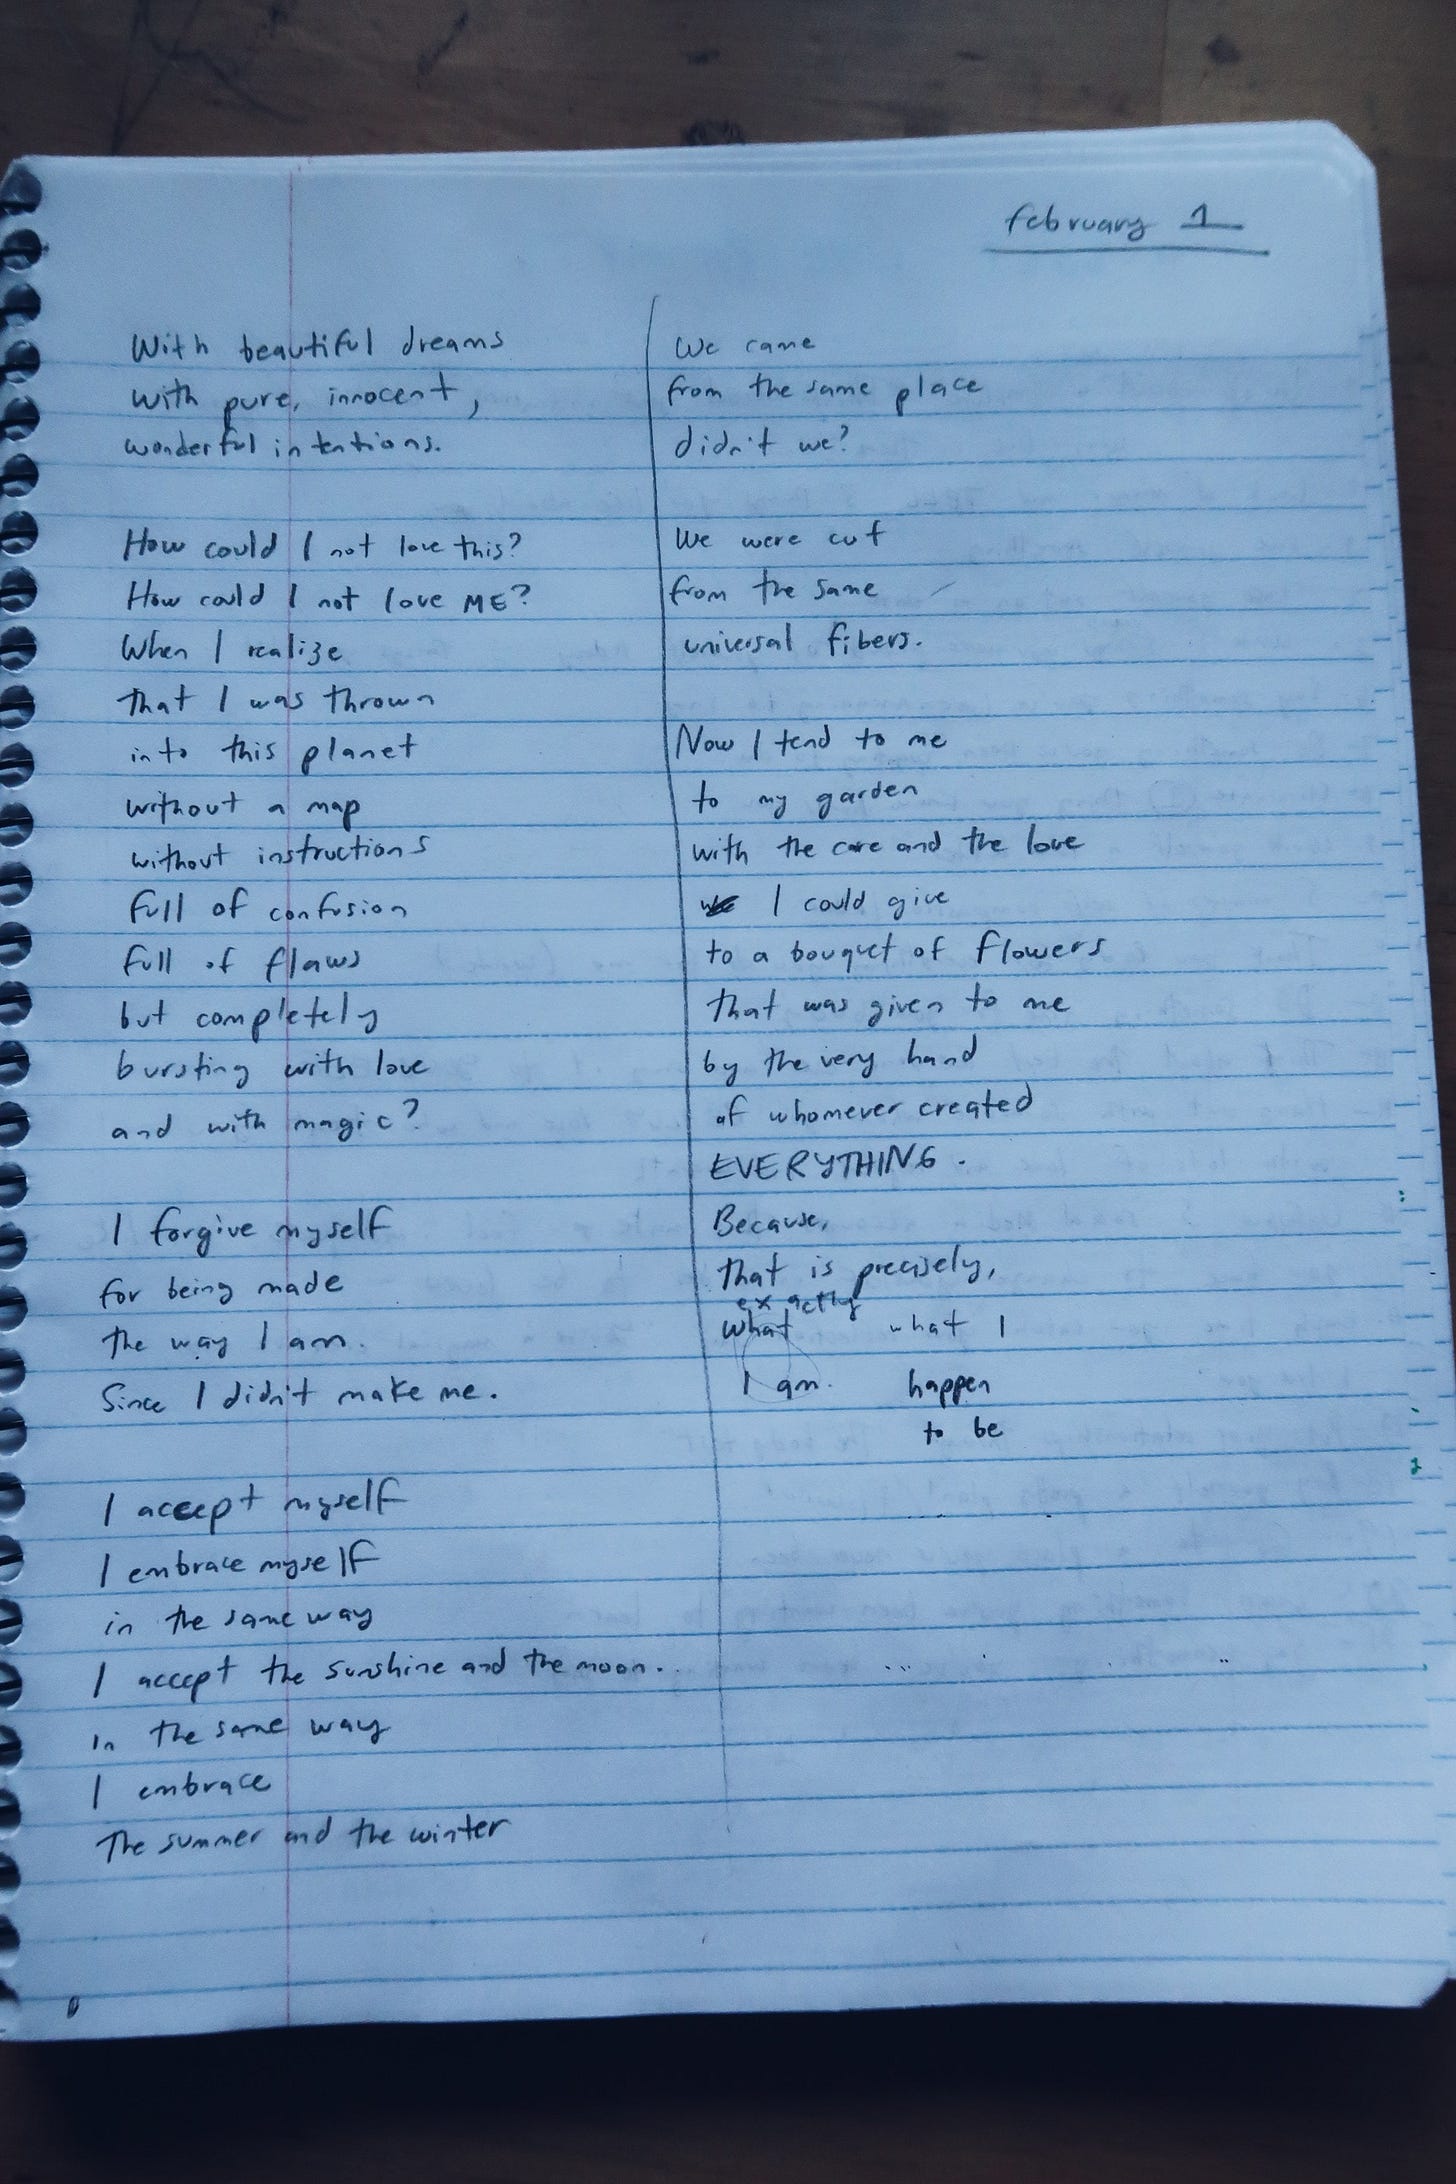 february 1
With beautiful dreams
with pure, innocent,
wonderful intentions.
How could I not love this?
How could I not love ME?
When I realize
that I was thrown
into this planet
without a map
without instructions
full of confusion
full of flaws
but completely
bursting with love
and with magic?
I forgive myself
for being made
the way I am.
Since I didn't make me.
I accept myself
I embrace myself
in the same way
I accept the sunshine and the moon..
in the same way
I embrace
The summer and the winter
We came
from the same place
didn't we?
We were cut
from the same
universal fibers.
Now I tend to me
to my garden
with the care and the love
I could give
to a bouquet of flowers
that was given to me
by the very hand
of whomever created
EVERYTHING.
Because,
that is precisely,
exactly
what what I
I am. happen
to be